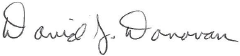 David J. Donovan